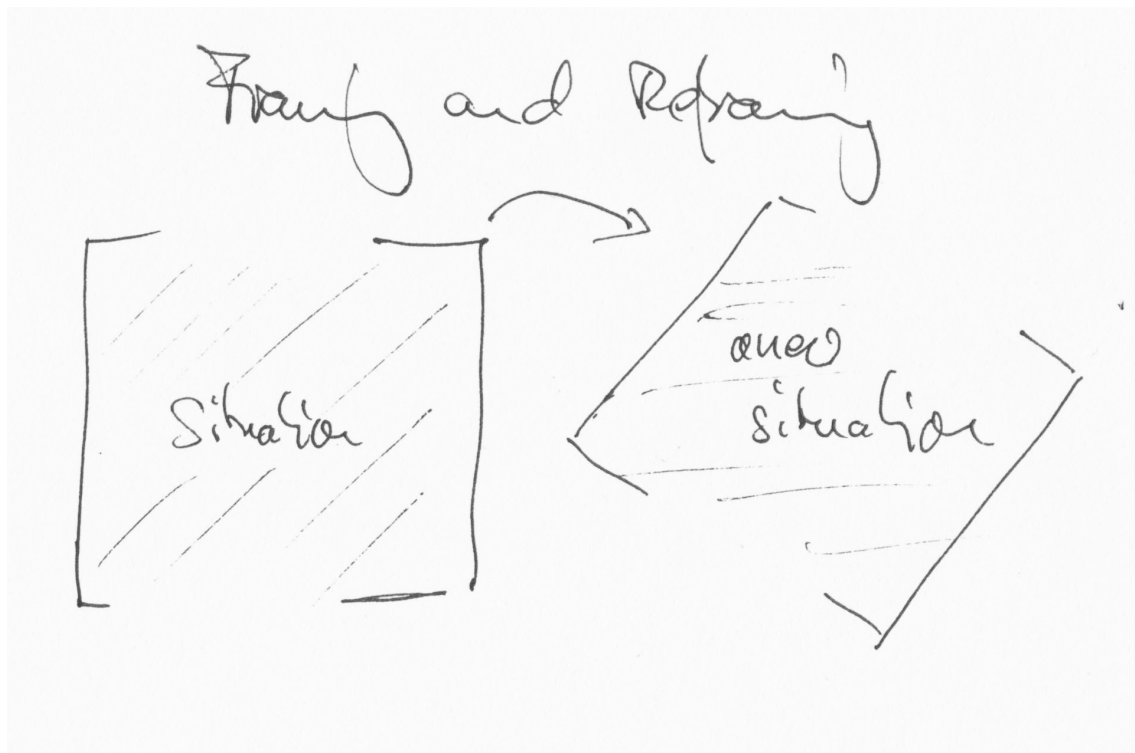 Framing and Reframing
Situation
a new
situation